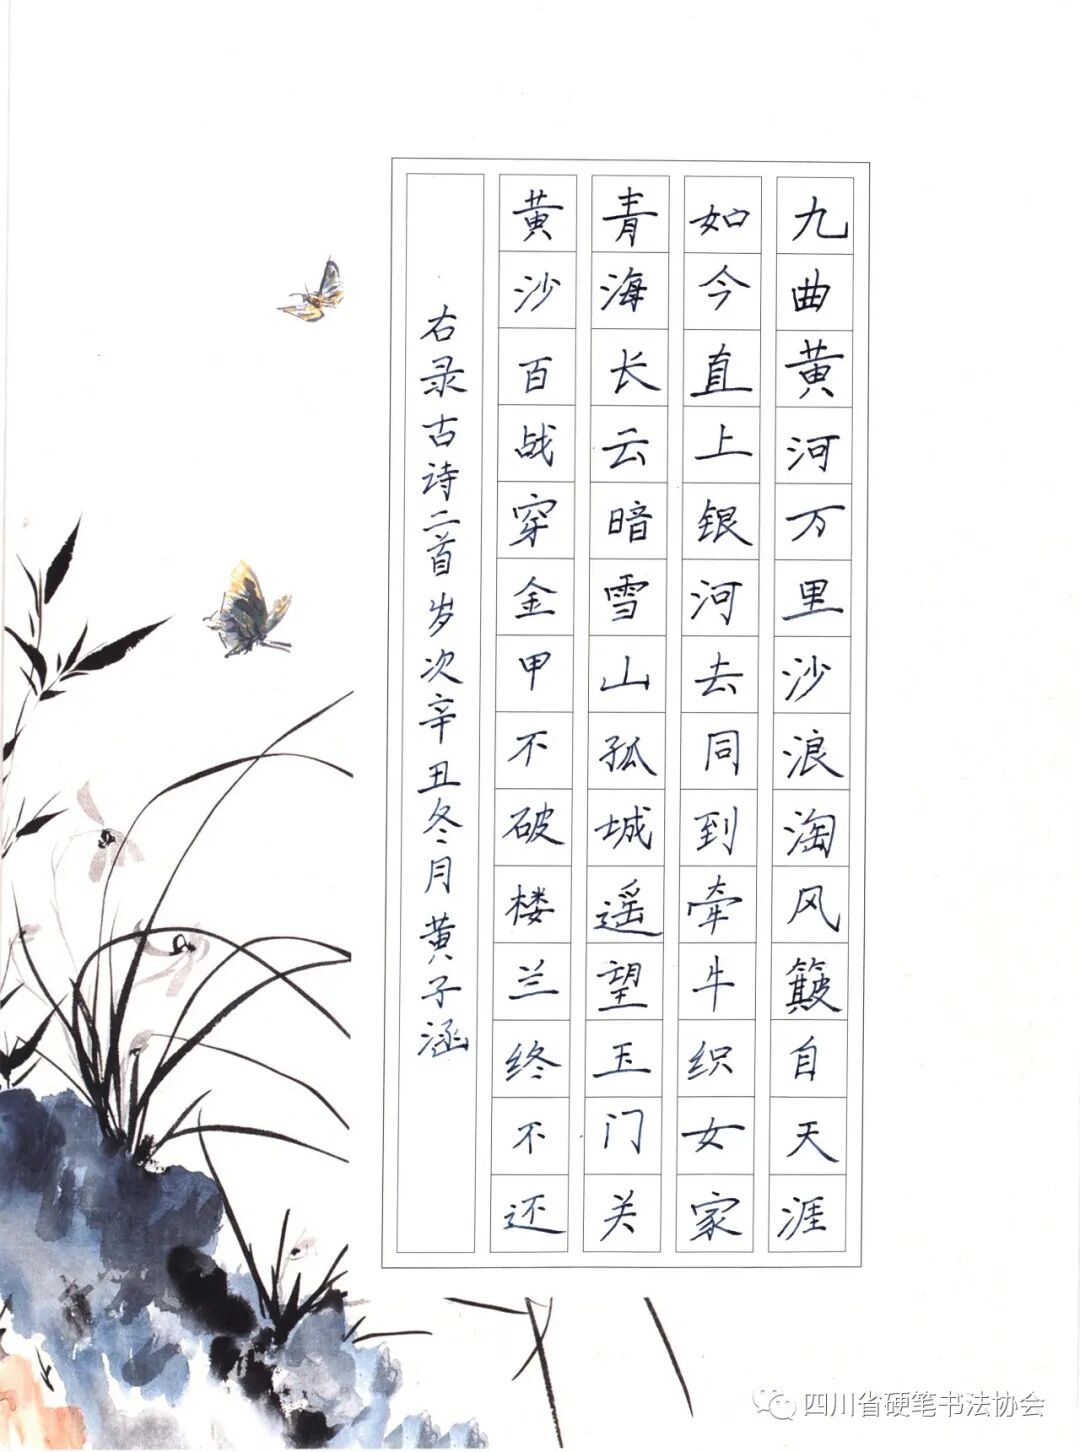 九曲黄河万里沙浪淘风簸自天涯
如今直上银河去同到牵牛织女家
青海长云暗雪山孤城遥望玉门关
黄沙百战穿金甲不破楼兰终不还
右录古诗二首岁次辛丑冬月黄子涵
四川省硬笔书法协会